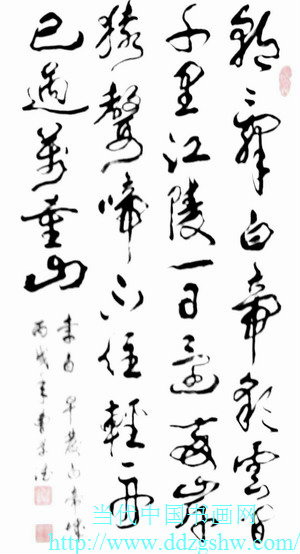 朝辭白帝彩雲間
千里江陵一日還兩岸
猿聲啼不住輕舟
已過萬重山
李白 早發白帝城
丙戌年
当代中国书画网
http://www.ddzgshw.com